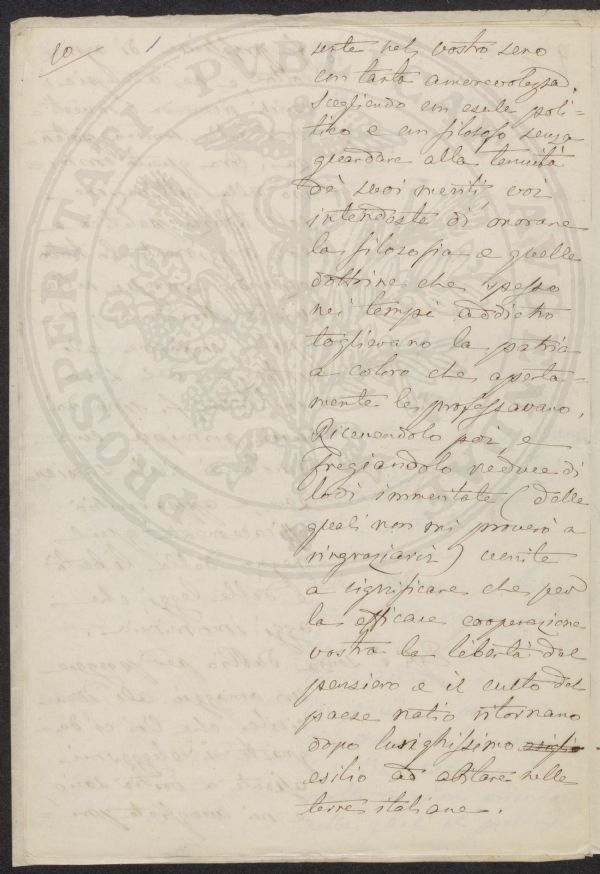 10
1
sente nel vostro seno
con tanta amorevolezza.
Scegliendo un esule poli-
tico e un filosofo senza
guardare alla tenuità
de' suoi meriti, voi
intendeste di onorare
la filosofia e quelle
dottrine che spesso
nei tempi addietro
toglievano la patria
a coloro che aperta-
mente le professavano.
Ricevendolo poi, e
fregiandolo reduce di
lodi immeritate (delle
quali non mi proverò a
ringraziarvi) veniste
a significare che per
la efficace cooperazione
vostra la libertà del
pensiero e il culto del
paese natio ritornano
dopo lunghissimo
esilio ad abitare nelle
terre italiane.
PROSPERITATI PVBL